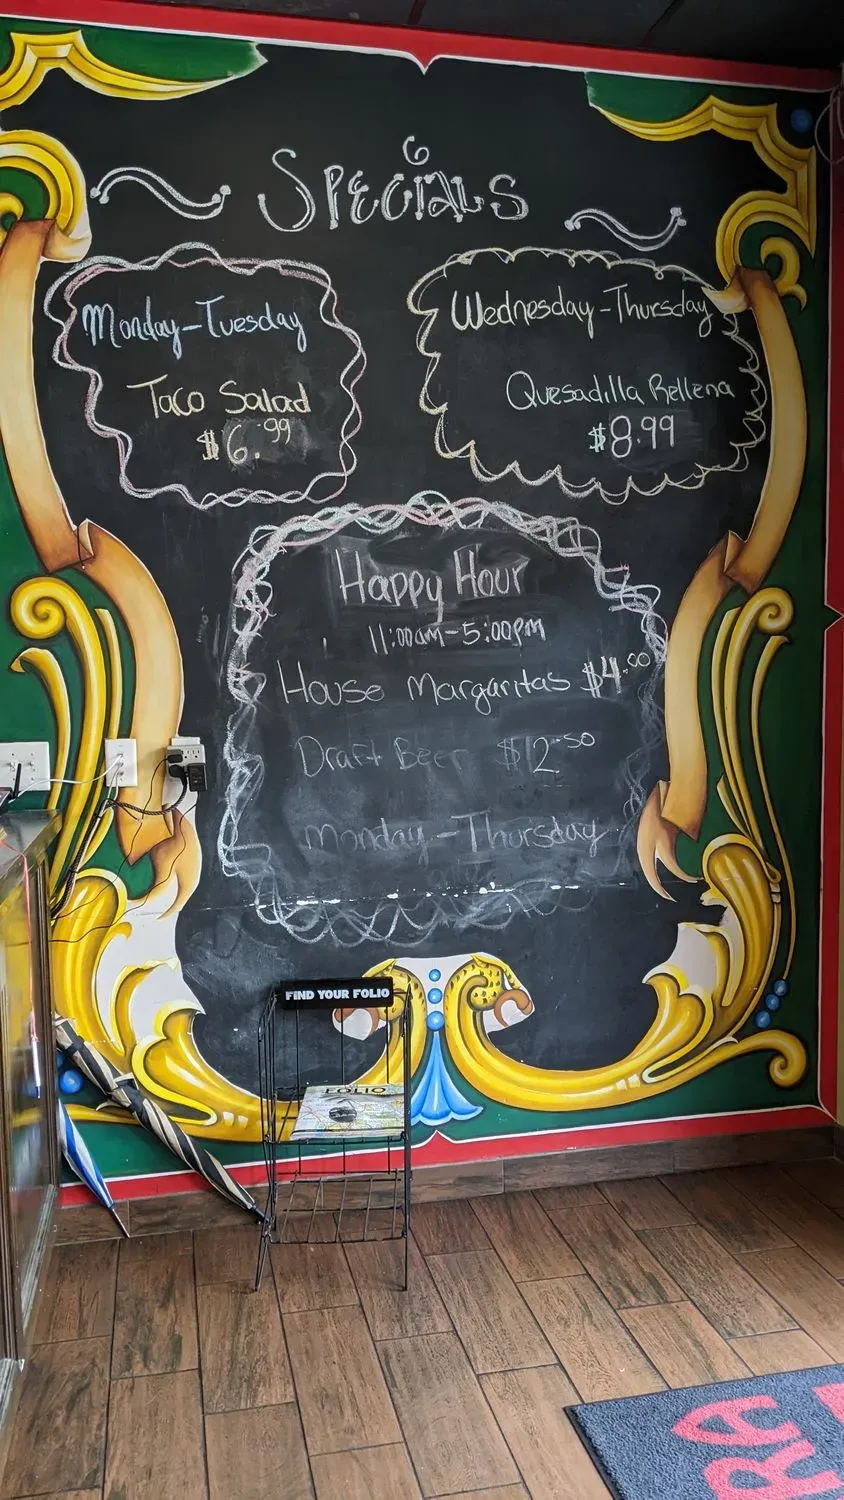 Specials
Monday-Tuesday
Taco Salad
$6.99
Wednesday-Thursday
Quesadilla Rellena
$8.99
Happy Hour
11:00am-5:00pm
House Margaritas $4.00
Draft Beer $2.50
Monday-Thursday
FIND YOUR FOLIO
FOLIO
RA